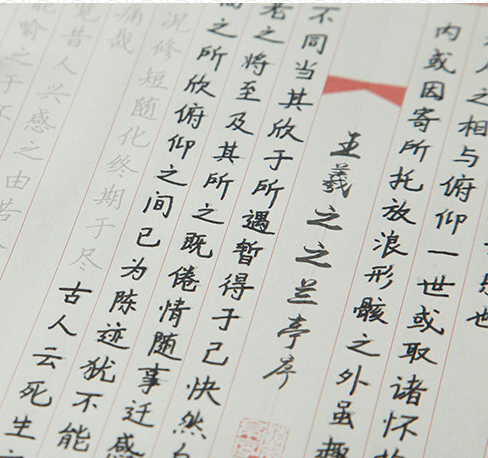 人之相与俯仰一世或取诸怀
内或因寄所托放浪形骸之外虽趣
王羲之之兰亭序
不同当其欣于所遇暂得于己快然
老之将至及其所之既倦情随事迁感
之所欣俯仰之间已为陈迹犹不能
况修短随化终期于尽古人云死生
痛哉
昔人兴感之由若
能喻之于